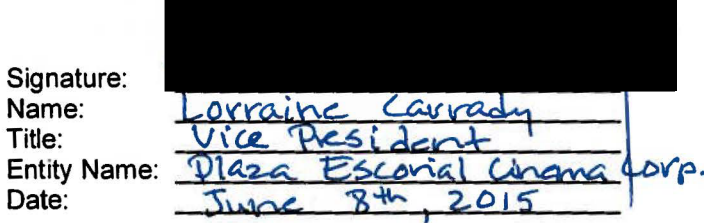 Signature:
Name: Lorraine Carrady
Title: Vice President
Entity Name: Plaza Escorial Cinema Corp.
Date: June 8th, 2015